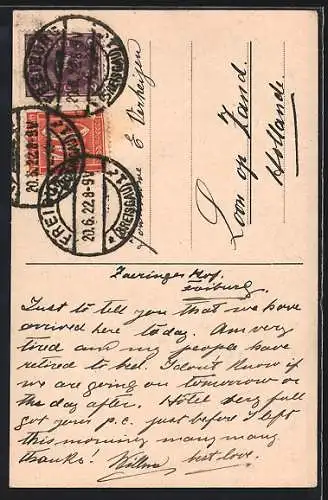 FREIBURG
(BREISGAU) 2
20.6.22.8-9V
FREIBURG
(BREISGAU) 2
20.6.22.8-9V
E Verheijen
Loon op Zand.
Hollande.
Zaeringer Hof.
Freiburg.
Just to tell you that we have
arrived here today. Am very
tired and my people have
retired to bed. I don't know if
we are going on tomorrow or
the day after. Hôtel very full
got your p.c. just before I left
this morning many many
thanks! best love.